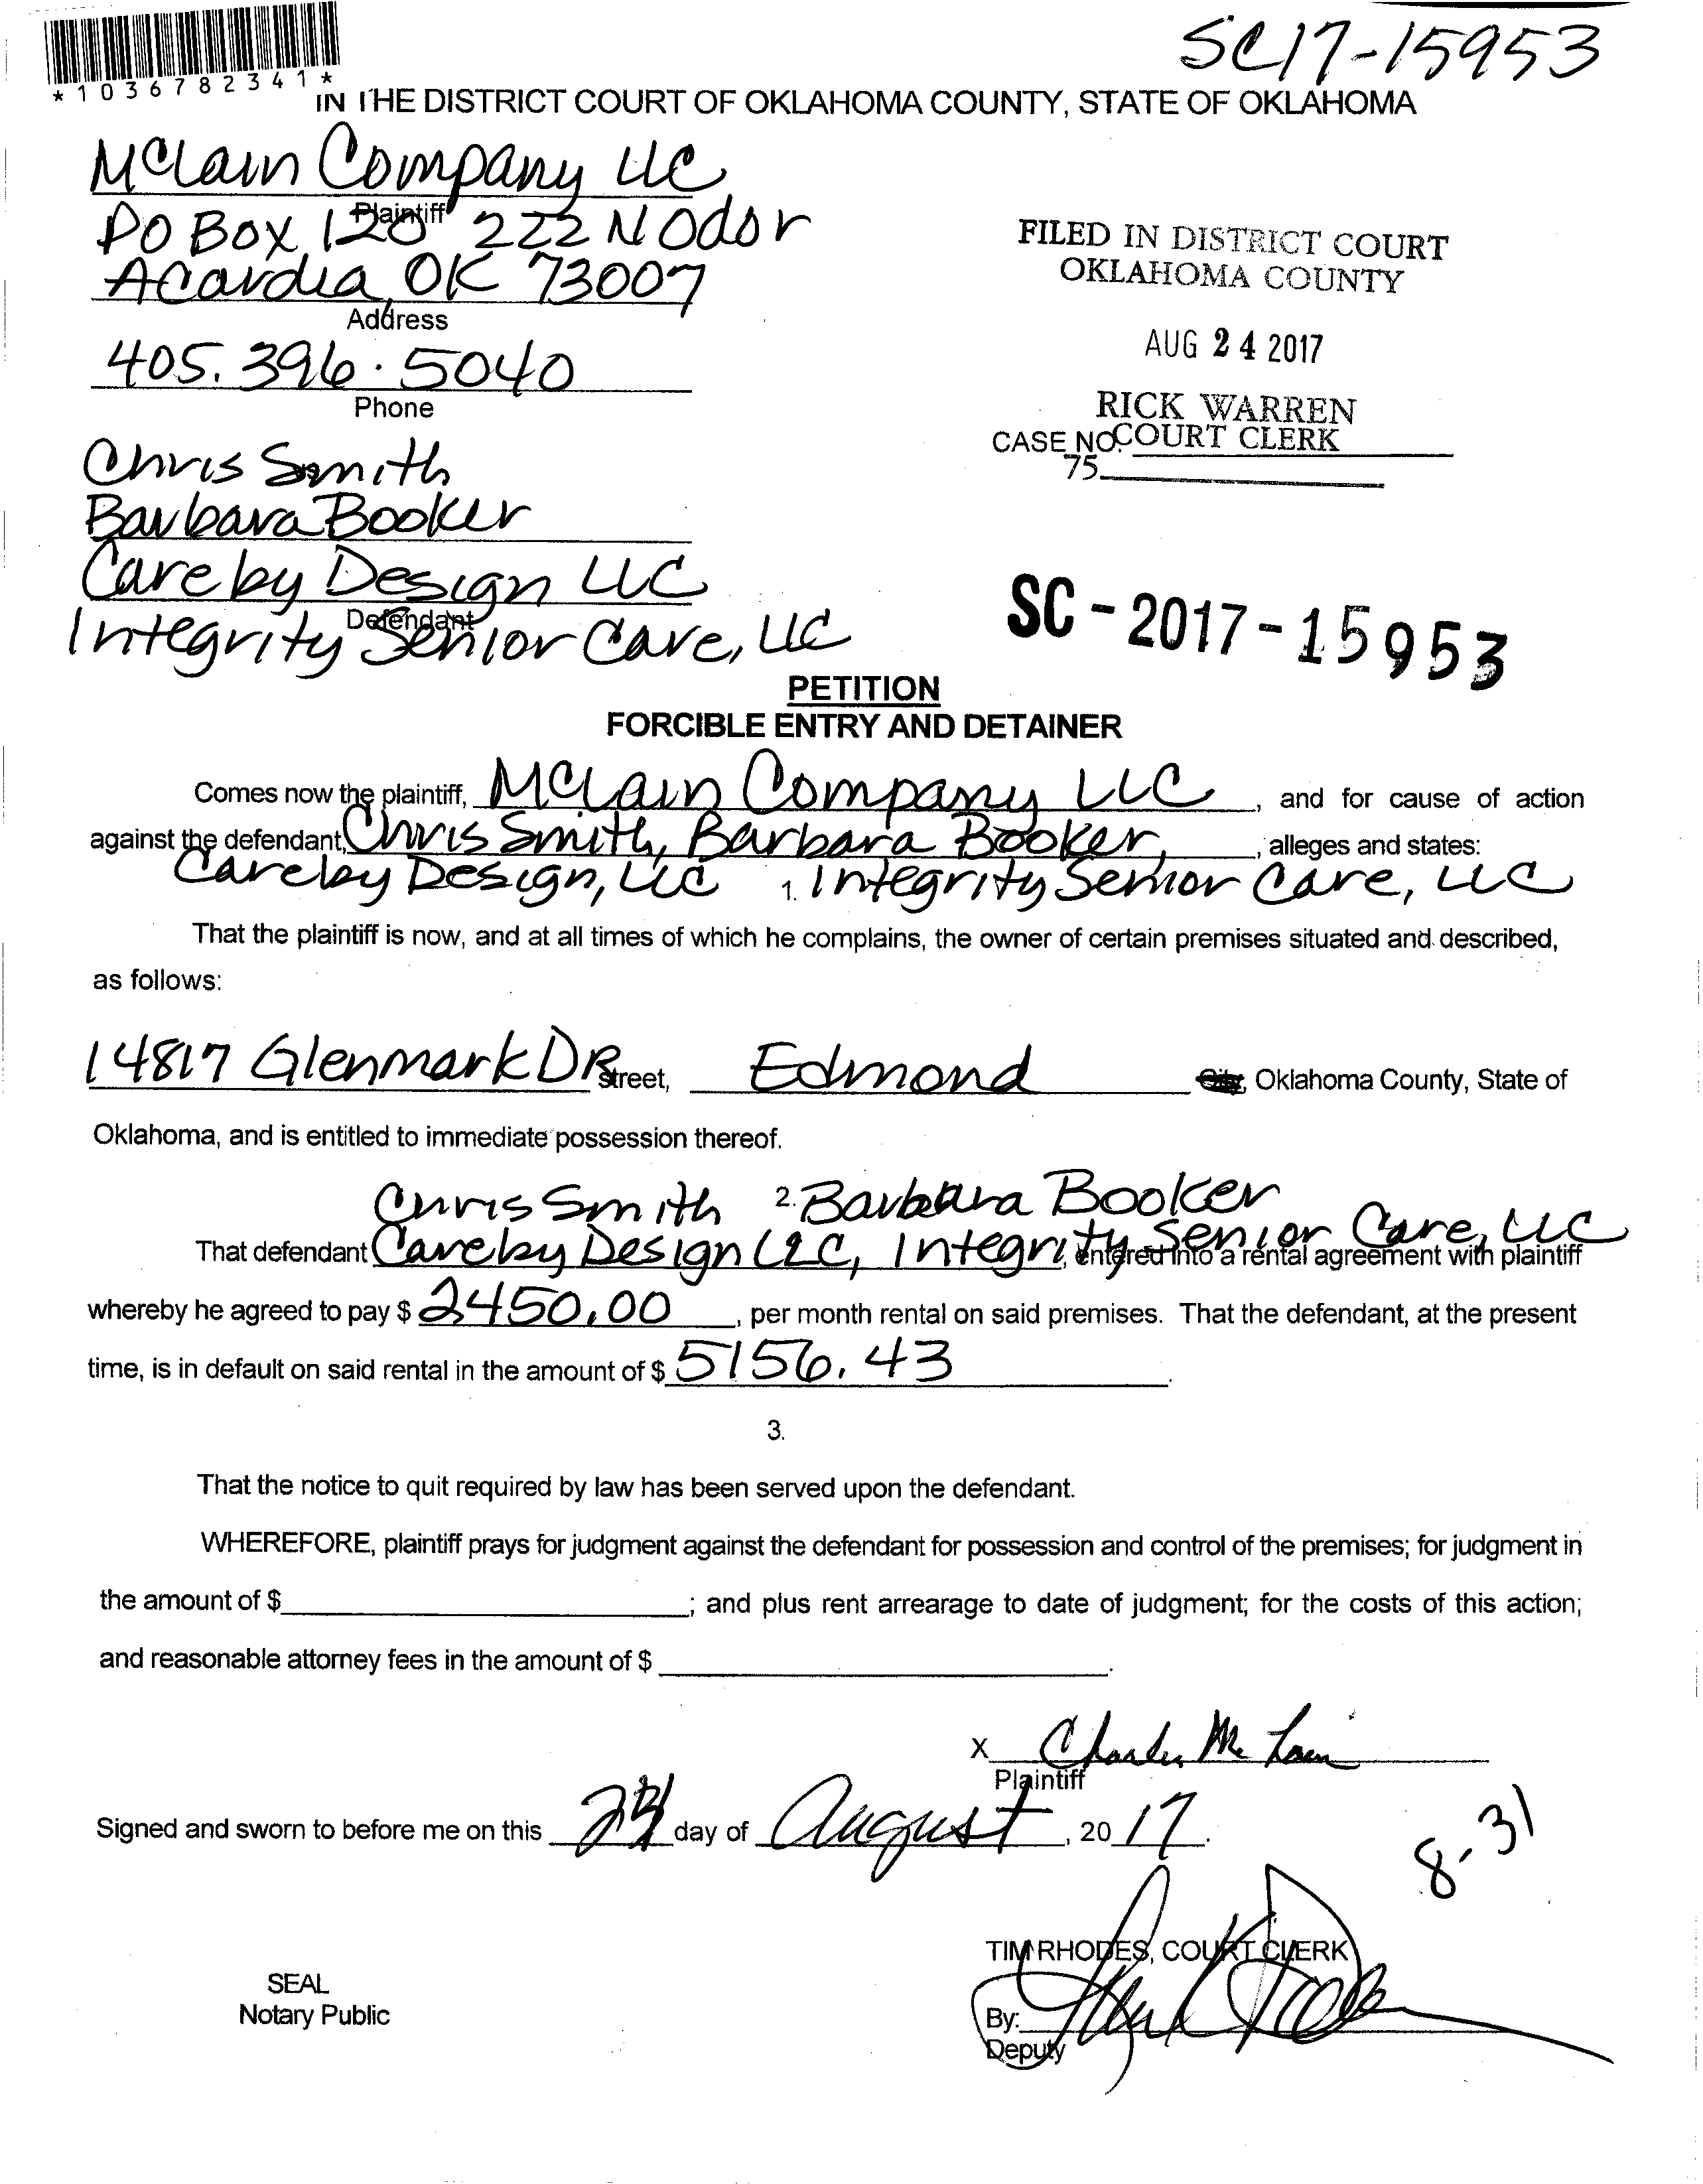 SC17-15953
*1036782341*
IN THE DISTRICT COURT OF OKLAHOMA COUNTY, STATE OF OKLAHOMA
McLain Company LLC
Plaintiff
PO Box 120 222 N Odor
Acardia, OK 73007
Address
405.396.5040
Phone
FILED IN DISTRICT COURT
OKLAHOMA COUNTY
AUG 24 2017
RICK WARREN
COURT CLERK
CASE NO.
75
Chris Smith
Barbara Booker
Care by Design LLC
Defendant
Integrity Senior Care, LLC
SC-2017-15953
PETITION
FORCIBLE ENTRY AND DETAINER
Comes now the plaintiff, McLain Company LLC, and for cause of action
against the defendant, Chris Smith, Barbara Booker, , alleges and states:
Care by Design, LLC 1. Integrity Senior Care, LLC
That the plaintiff is now, and at all times of which he complains, the owner of certain premises situated and described,
as follows:
14817 Glenmark DR Street, Edmond City, Oklahoma County, State of
Oklahoma, and is entitled to immediate possession thereof.
Chris Smith 2. Barbara Booker
That defendant Care by Design LLC, Integrity Senior Care, LLC, entered into a rental agreement with plaintiff
whereby he agreed to pay $ 2450.00, per month rental on said premises. That the defendant, at the present
time, is in default on said rental in the amount of $ 5156.43.
3.
That the notice to quit required by law has been served upon the defendant.
WHEREFORE, plaintiff prays for judgment against the defendant for possession and control of the premises; for judgment in
the amount of $ ; and plus rent arrearage to date of judgment; for the costs of this action;
and reasonable attorney fees in the amount of $ .
X Charles McLain
Plaintiff
Signed and sworn to before me on this 24 day of August, 2017.
8-31
TIM RHODES, COURT CLERK
SEAL
Notary Public
By:
Deputy